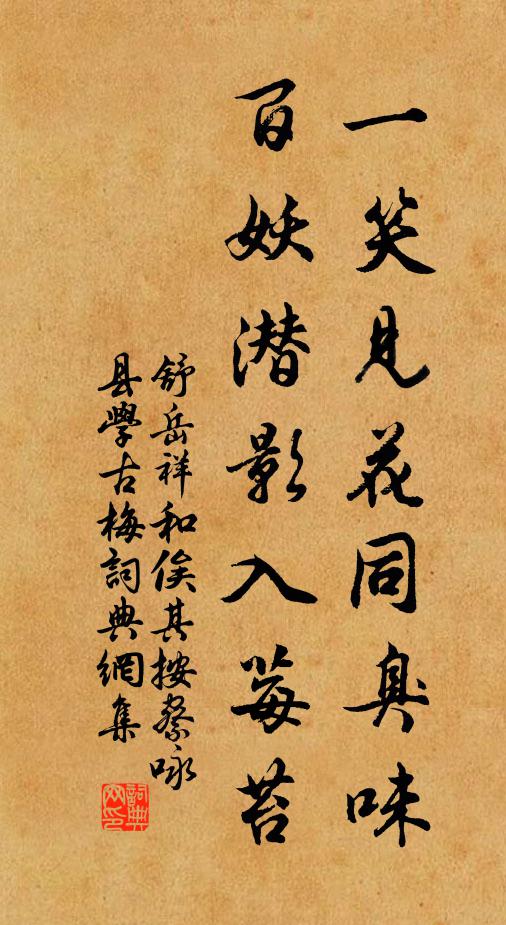 一笑見花同臭味
百妖潛影入莓苔
舒岳祥和俟其按察咏
县學古梅詞典網集
詞典网印